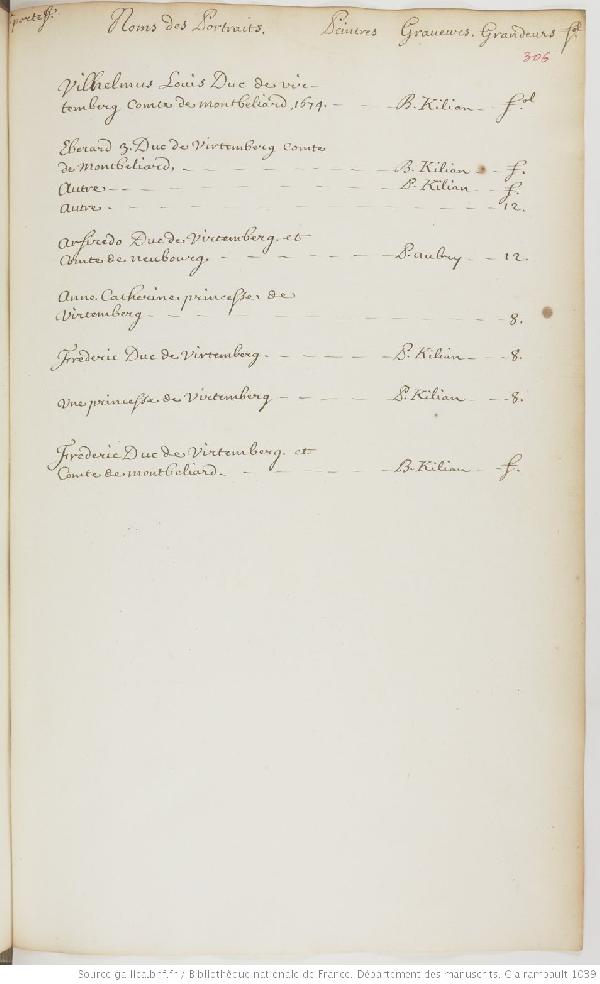 Noms des Portraits. Peintres Graveurs. Grandeurs
306
Vilhelmus Louis Duc de vir-
temberg Comte de montbeliard, 1674. - - B. Kilian - f.ol
Eberard 3. Duc de Virtemberg Comte
de Montbeliard, - - - - - B. Kilian - f.
Autre - - - - - - - P. Kilian - - f.
autre - - - - - - - - - 12.
Duc de Virtemberg et
Comte de neubourg - - - - - P. aubry - - 12.
Anne Catherine princesse de
Virtemberg - - - - - - - - - 8.
Fréderic Duc de Virtemberg - - - - P. Kilian - - 8.
Une princesse de Virtemberg - - - - P. Kilian - - 8.
Fréderic Duc de Virtemberg et
Comte de montbeliard - - - - - B. Kilian - - f.
Source gallica.bnf.fr / Bibliothèque nationale de France. Département des manuscrits. Clairambault 1039